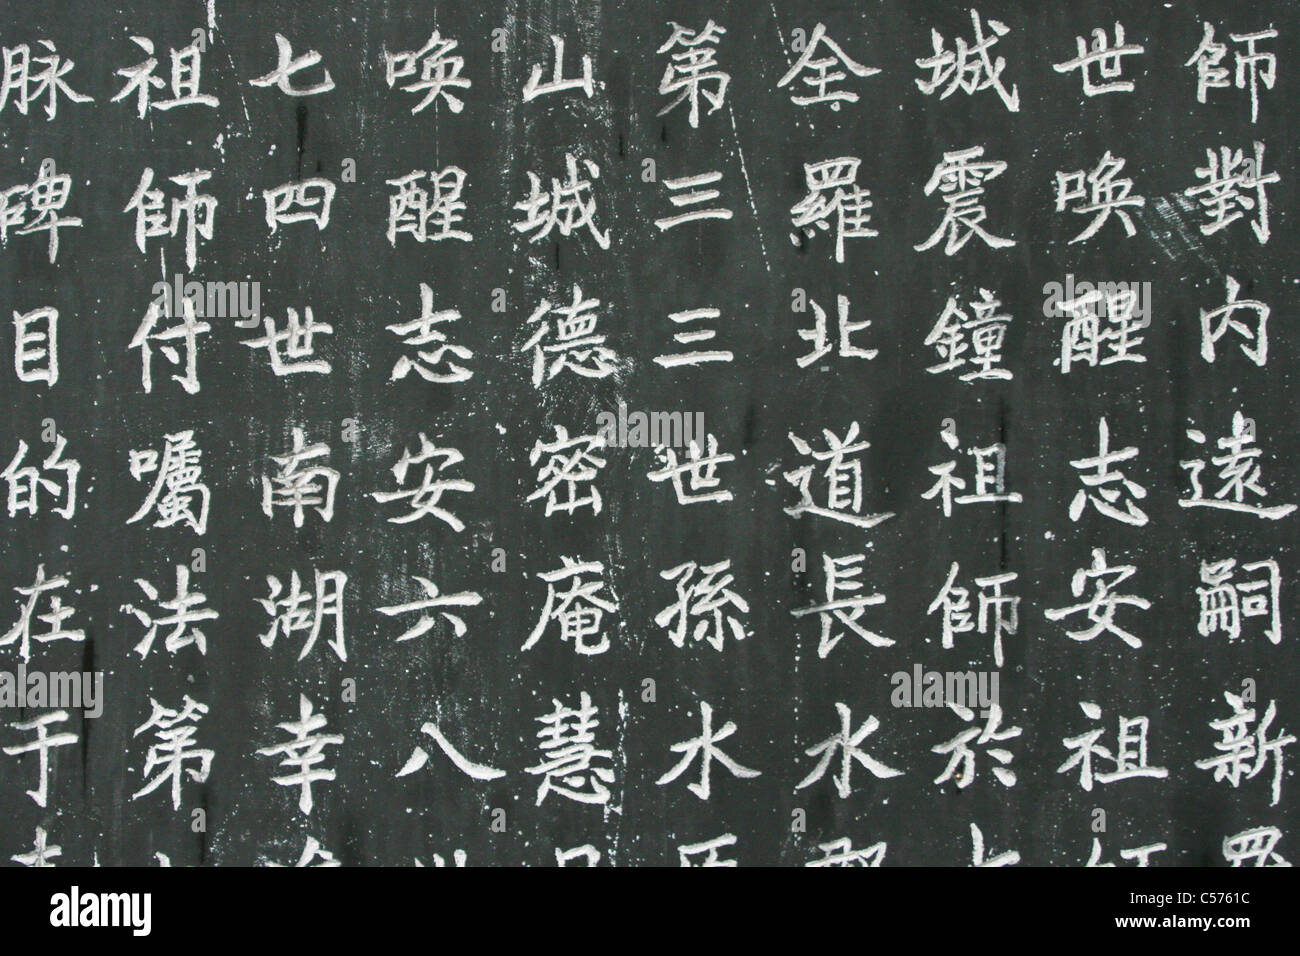 師對內遠嗣新
世喚醒志安祖
城震鐘祖師於
全羅北道長水
第三三世孫水
山城德密庵慧
喚醒志安六八
七四世南湖幸
祖師付囑法第
脉碑目的在于
alamy
Image ID: C5761C
www.alamy.com